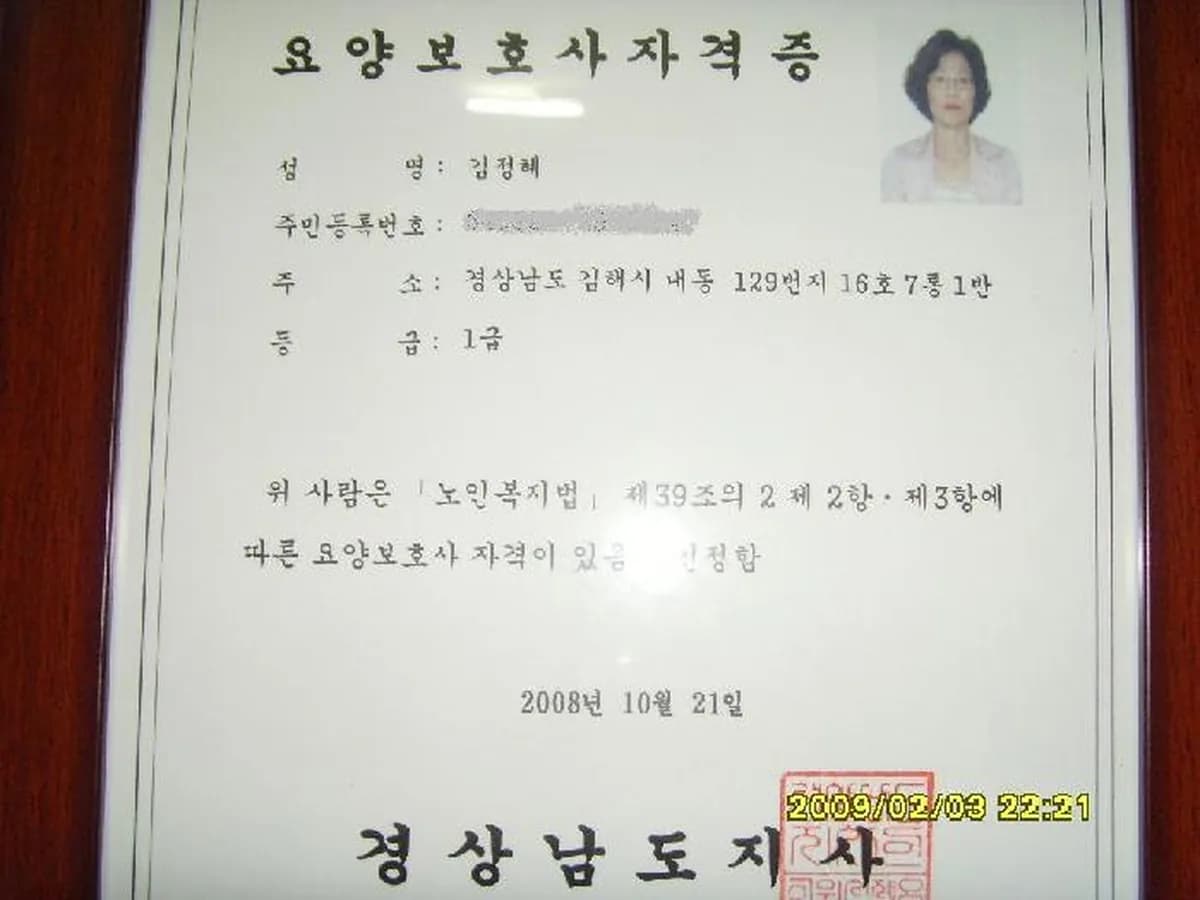 요양보호사자격증
성 명 : 김정혜
주민등록번호 :
주 소 : 경상남도 김해시 내동 129번지 16호 7통 1반
등 급 : 1급
위 사람은 「노인복지법」 제39조의 2 제 2항·제3항에
따른 요양보호사 자격이 있음 인정함
2008년 10월 21일
2009/02/03 22:21
경상남도지사